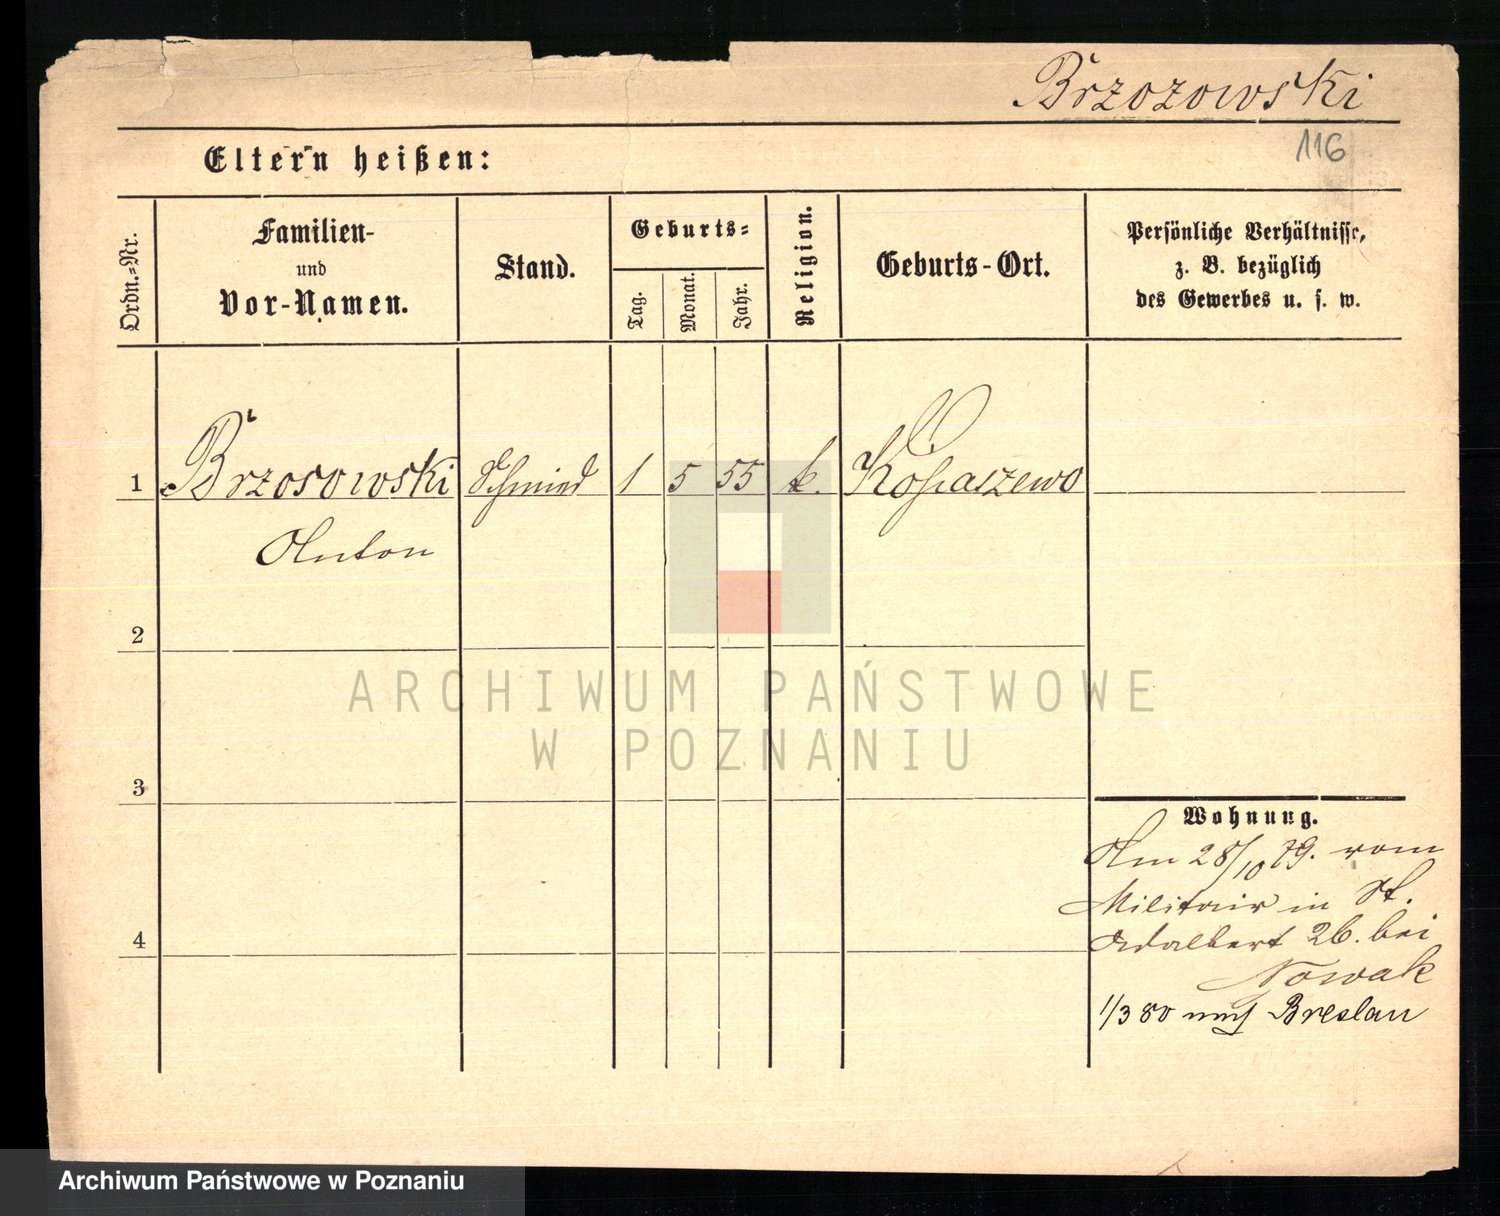 Brzozowski
116
Eltern heißen:
Ordn.=Nr.
Familien-
und
Vor-Namen.
Stand.
Geburts=
Tag.
Monat.
Jahr.
Religion.
Geburts-Ort.
Persönliche Verhältnisse,
z. B. bezüglich
des Gewerbes u. s. w.
1 Brzosowski Schmied 1 5 55 k. Kopaszewo
Anton
2
3
4
Wohnung.
Am 28/10 79. vom
Militair in St.
Adalbert 26. bei
Nowak
1/3 80 nach Breslau
ARCHIWUM PAŃSTWOWE
W POZNANIU
Archiwum Państwowe w Poznaniu